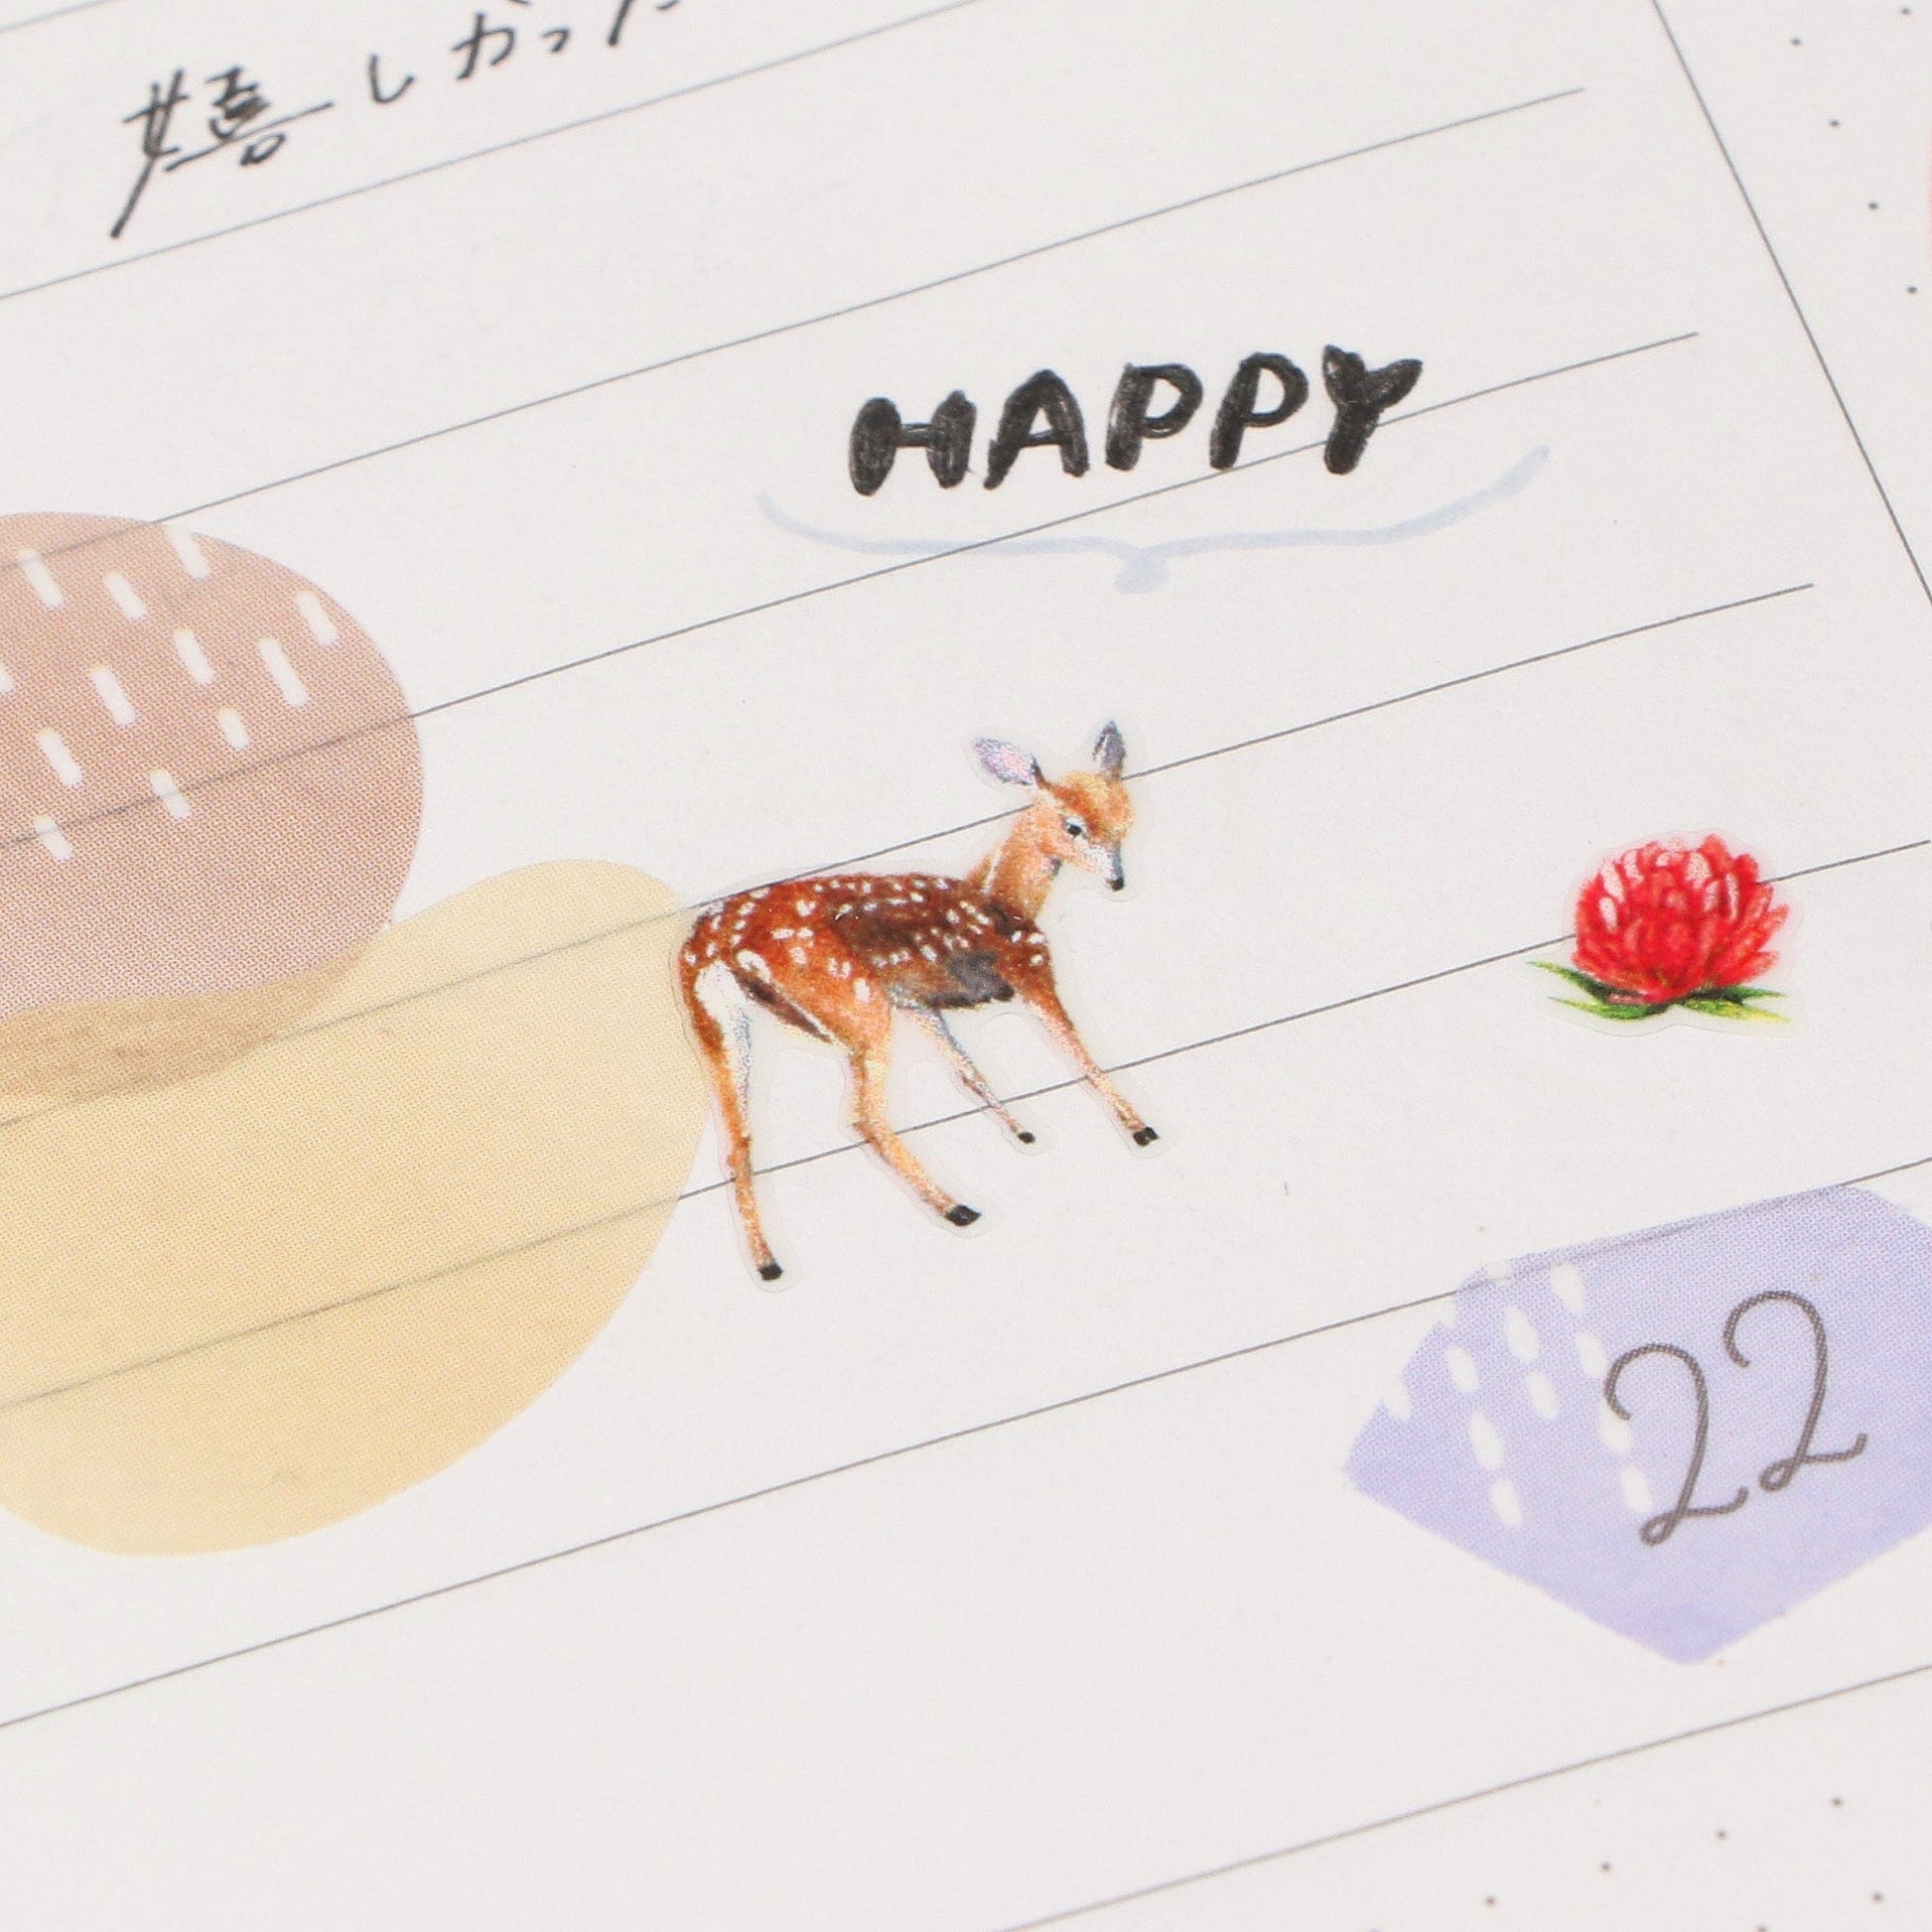 嬉しかった
HAPPY
22